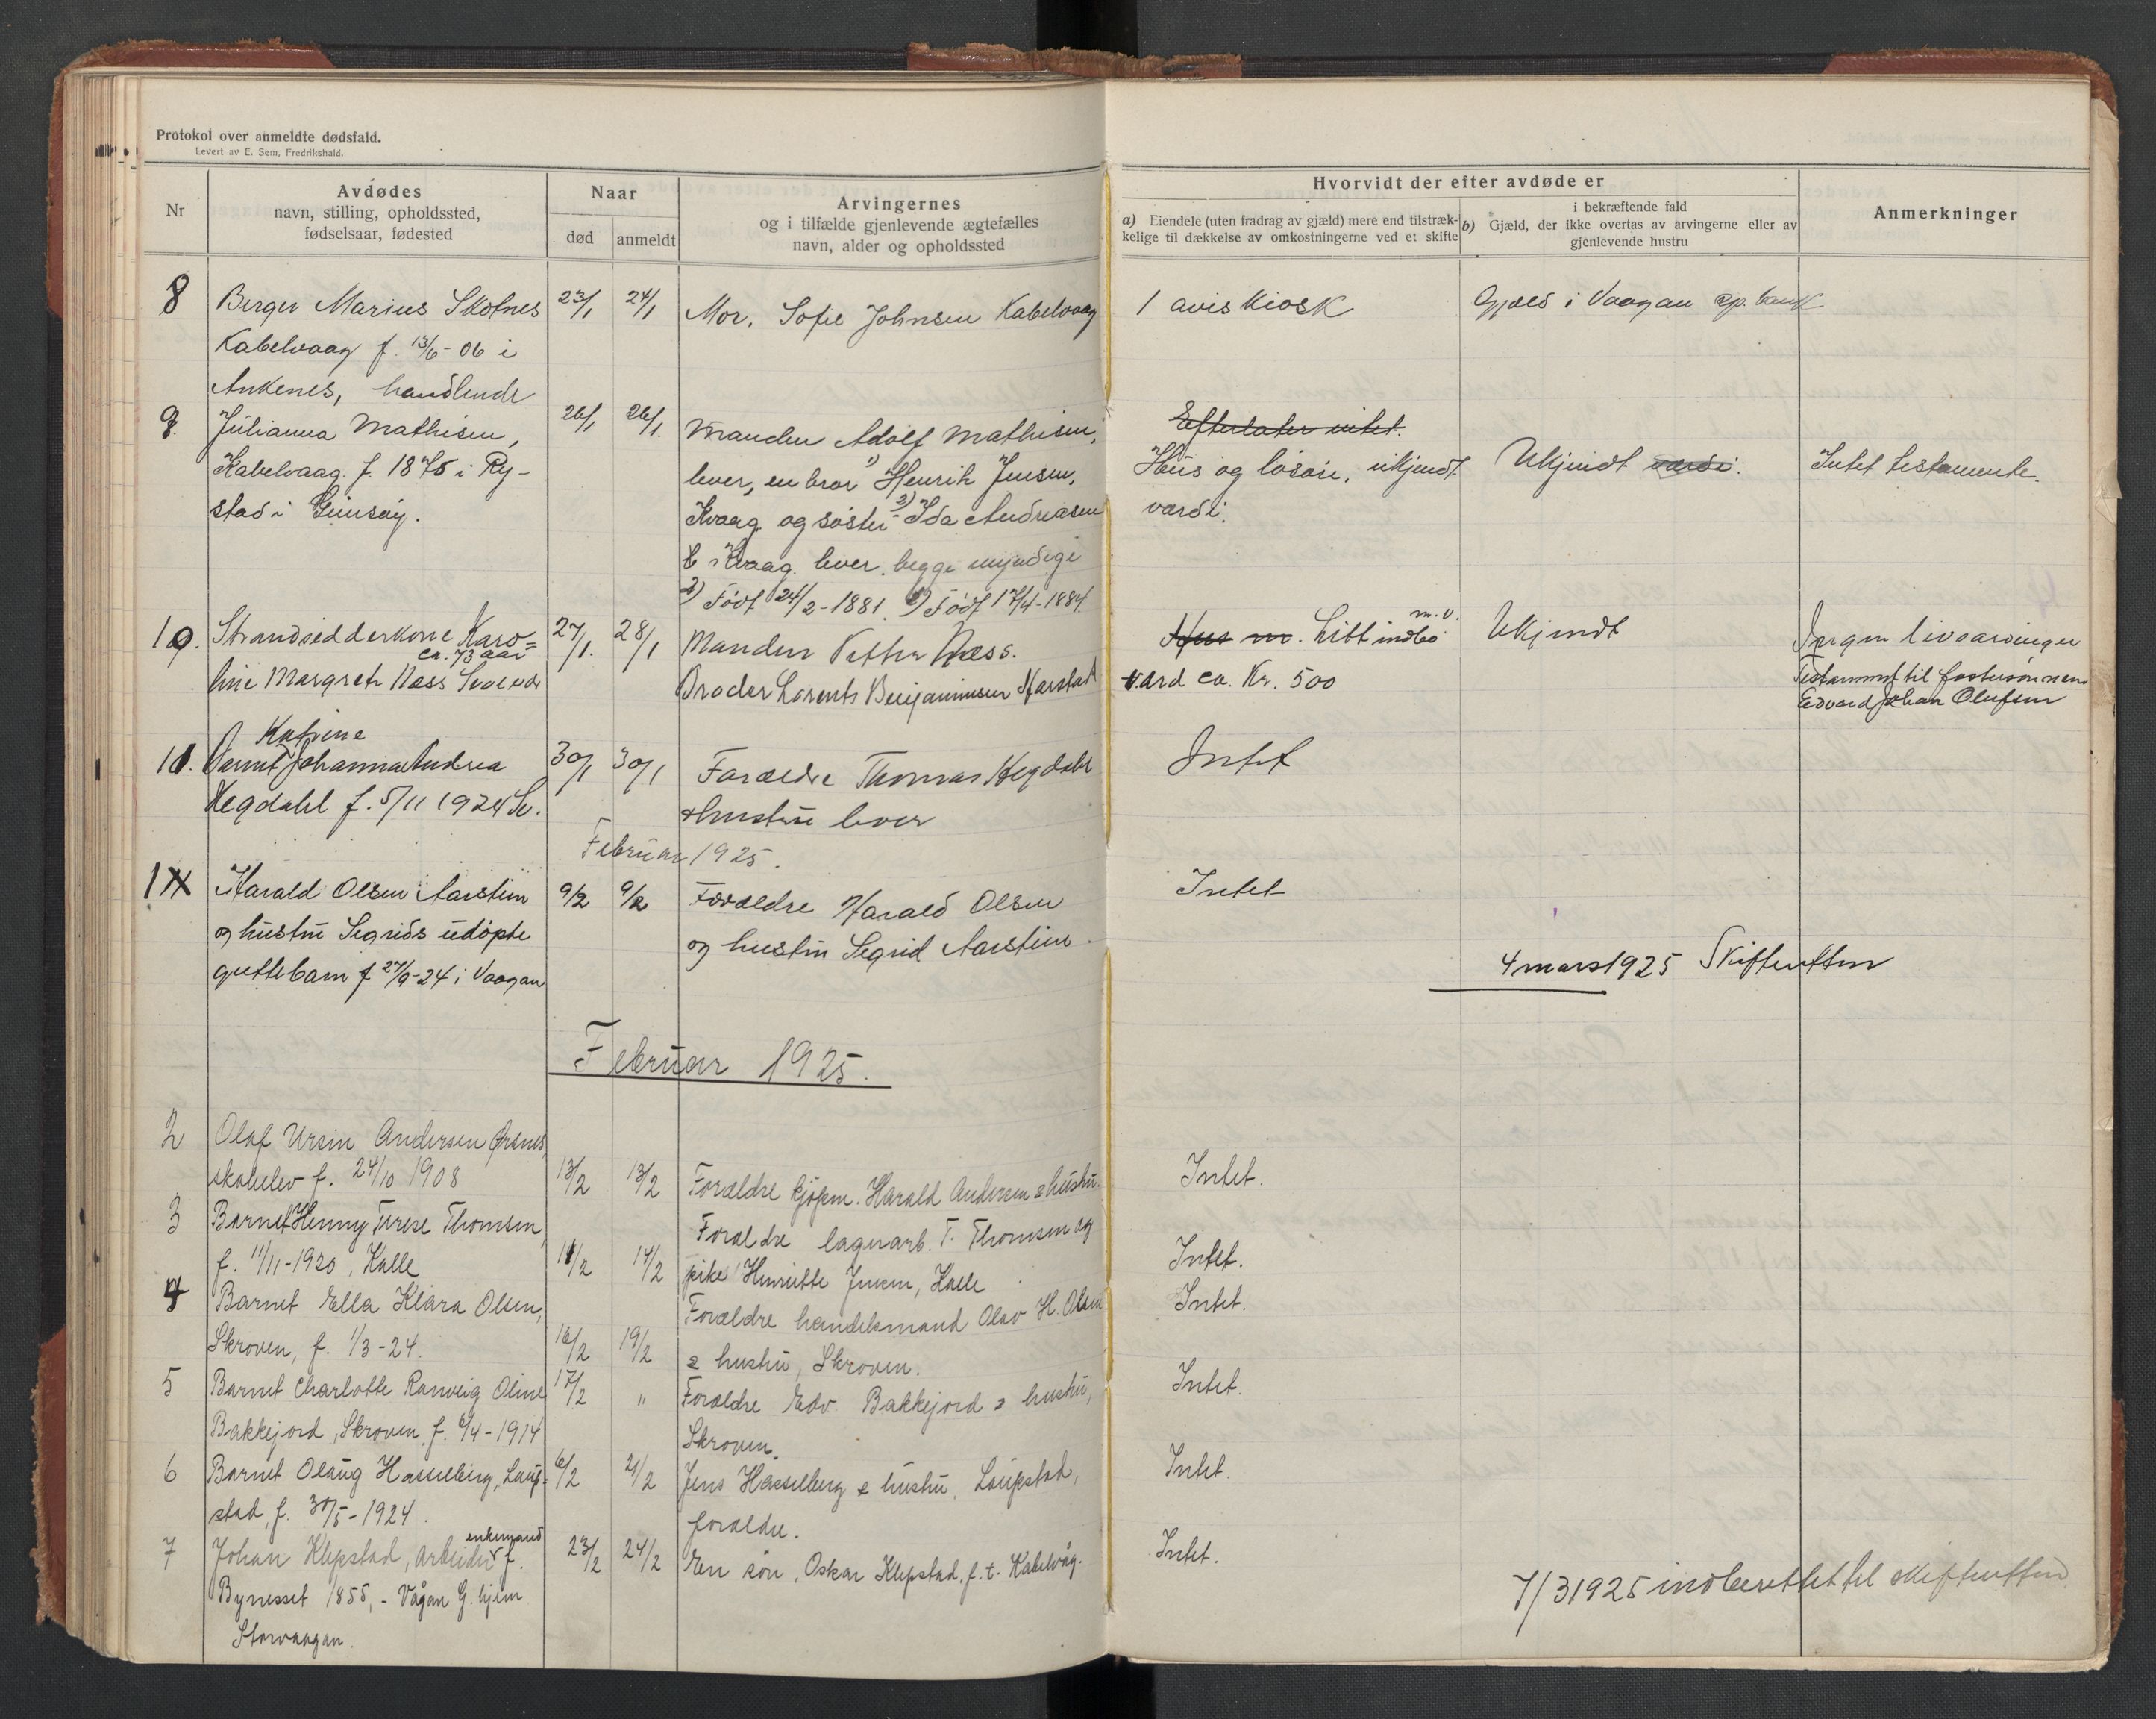 Protokol over anmeldte dødsfald.
Levert av E. Sem, Fredrikshald.
Nr
Avdødes
navn, stilling, opholdssted,
fødselsaar, fødested
Naar
død
anmeldt
Arvingernes
og i tilfælde gjenlevende ægtefælles
navn, alder og opholdssted
Hvorvidt der efter avdøde er
a) Eiendele (uten fradrag av gjæld) mere end tilstræk-
kelige til dækkelse av omkostningerne ved et skifte
i bekræftende fald
b) Gjæld, der ikke overtas av arvingerne eller av
gjenlevende hustru
Anmerkninger
8 Berger Marius Skotnes 23/1 24/1 Mor. Sofie Johnsen Kabelvaag 1 avis kiosk Gjæld i Vaagan sp. bank
Kabelvaag f. 13/6-06 i
Ankenes, handlende
9. Julianna Mathisen, 26/1 26/1. Manden Adolf Mathisen, Efterlater intet.
Kabelvaag. f. 1875 i Ry- lever, en bror 1) Henrik Jensen, Hus og løsøre, ukjendt Ukjendt værdi. Intet testamente.
stad i Gimsøy. Kvaag. og søster 2) Ida Andreasen værdi.
Kvaag. lever. begge myndige
2) Født 24/2-1881. 1) Født 17/4-1884.
10. Strandsidderkone Karo= 27/1. 28/1 Manden Petter Næss. Hus m. Litt indbo m.v. Ukjendt Ingen livsarvinger
ca. 73 aar
line Margrete Næss Svolvær Broder Lorents Benjaminsen Harstad værd ca. Kr. 500 Testament til fostersønnen
Edvard Johan Olufsen
Katrine
11. Barnet Johanna Andrea 30/1 30/1 Forældre Thomas Hegdahl Intet
Hegdahl f. 5/11 1924 Sv. & hustru lever
Februar 1925.
1 Harald Olsen Aarstein 9/2 9/2 Forældre Harald Olsen Intet
og hustru Sigrids udøpte og hustru Sigrid Aarstein.
guttebarn f 27/9-24 i Vaagan
4 mars 1925 Skifteretten
Februar 1925.
2 Olaf Ursin Andersen Ørsnes,
skoleelev f. 24/10 1908 13/2 13/2 Forældre kjøpm. Harald Andersen & hustru. Intet.
3 Barnet Henny Terese Thomsen, Forældre lagerarb. T. Thomsen og
f. 11/11-1920, Kalle 11/2 14/2 pike Henriette Jensen, Kalle Intet.
4 Barnet Ella Klara Olsen, Forældre handelsmand Olav H. Olsen Intet.
Skroven, f. 1/3-24. 16/2 19/2 & hustru, Skroven.
5 Barnet Charlotte Ranveig Oline 17/2 " Forældre Edv. Bakkejord & hustru, Intet.
Bakkejord, Skroven, f. 6/4-1914 Skroven.
6 Barnet Olaug Hasselberg, Laup- 6/2 21/2 Jens Hasselberg & hustru, Laupstad, Intet.
stad, f. 30/5-1924. forældre.
enkemand
7 Johan Klepstad, arbeider f. 23/2 24/2 En søn, Oskar Klepstad, f.t. Kabelvåg. Intet.
Bynesset 1855, - Vågan G.hjem
Storvaagan.
7/3 1925 indberettet til skifteretten